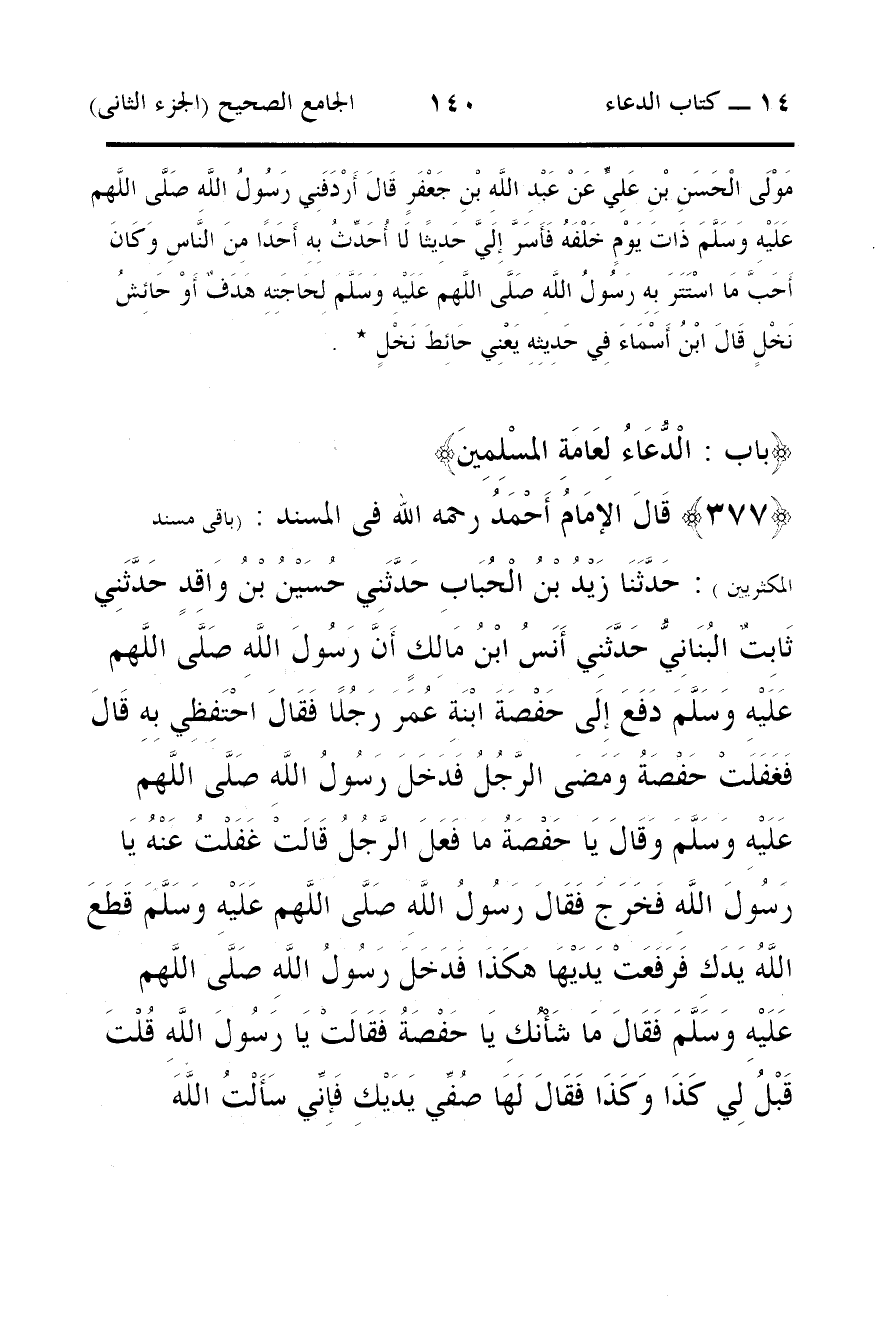 ١٤ ــ كتاب الدعاء ١٤٠ الجامع الصحيح (الجزء الثانى)
مَوْلَى الْحَسَنِ بْنِ عَلِيٍّ عَنْ عَبْدِ اللَّهِ بْنِ جَعْفَرٍ قَالَ أَرْدَفَنِي رَسُولُ اللَّهِ صَلَّى اللَّهم
عَلَيْهِ وَسَلَّمَ ذَاتَ يَوْمٍ خَلْفَهُ فَأَسَرَّ إِلَيَّ حَدِيثًا لَا أُحَدِّثُ بِهِ أَحَدًا مِنَ النَّاسِ وَكَانَ
أَحَبَّ مَا اسْتَتَرَ بِهِ رَسُولُ اللَّهِ صَلَّى اللَّهم عَلَيْهِ وَسَلَّمَ لِحَاجَتِهِ هَدَفٌ أَوْ حَائِشُ
نَخْلٍ قَالَ ابْنُ أَسْمَاءَ فِي حَدِيثِهِ يَعْنِي حَائِطَ نَخْلٍ * .
﴿باب : الْدُّعَاءُ لِعَامَةِ المسْلِمِينَ﴾
﴿٣٧٧﴾ قَالَ الإِمَامُ أَحْمَدُ رحمه الله فى المسند : (باقى مسند
المكثريين ) : حَدَّثَنَا زَيْدُ بْنُ الْحُبَابِ حَدَّثَنِي حُسَيْنُ بْنُ وَاقِدٍ حَدَّثَنِي
ثَابِتٌ البُنَانِيُّ حَدَّثَنِي أَنَسُ ابْنُ مَالِكٍ أَنَّ رَسُولَ اللَّهِ صَلَّى اللَّهم
عَلَيْهِ وَسَلَّمَ دَفَعَ إِلَى حَفْصَةَ ابْنَةِ عُمَرَ رَجُلًا فَقَالَ احْتَفِظِي بِهِ قَالَ
فَغَفَلَتْ حَفْصَةُ وَمَضَى الرَّجُلُ فَدَخَلَ رَسُولُ اللَّهِ صَلَّى اللَّهم
عَلَيْهِ وَسَلَّمَ وَقَالَ يَا حَفْصَةُ مَا فَعَلَ الرَّجُلُ قَالَتْ غَفَلْتُ عَنْهُ يَا
رَسُولَ اللَّهِ فَخَرَجَ فَقَالَ رَسُولُ اللَّهِ صَلَّى اللَّهم عَلَيْهِ وَسَلَّمَ قَطَعَ
اللَّهُ يَدَكِ فَرَفَعَتْ يَدَيْهَا هَكَذَا فَدَخَلَ رَسُولُ اللَّهِ صَلَّى اللَّهم
عَلَيْهِ وَسَلَّمَ فَقَالَ مَا شَأْنُكِ يَا حَفْصَةُ فَقَالَتْ يَا رَسُولَ اللَّهِ قُلْتَ
قَبْلُ لِي كَذَا وَكَذَا فَقَالَ لَهَا صُفِّي يَدَيْكِ فَإِنِّي سَأَلْتُ اللَّهَ